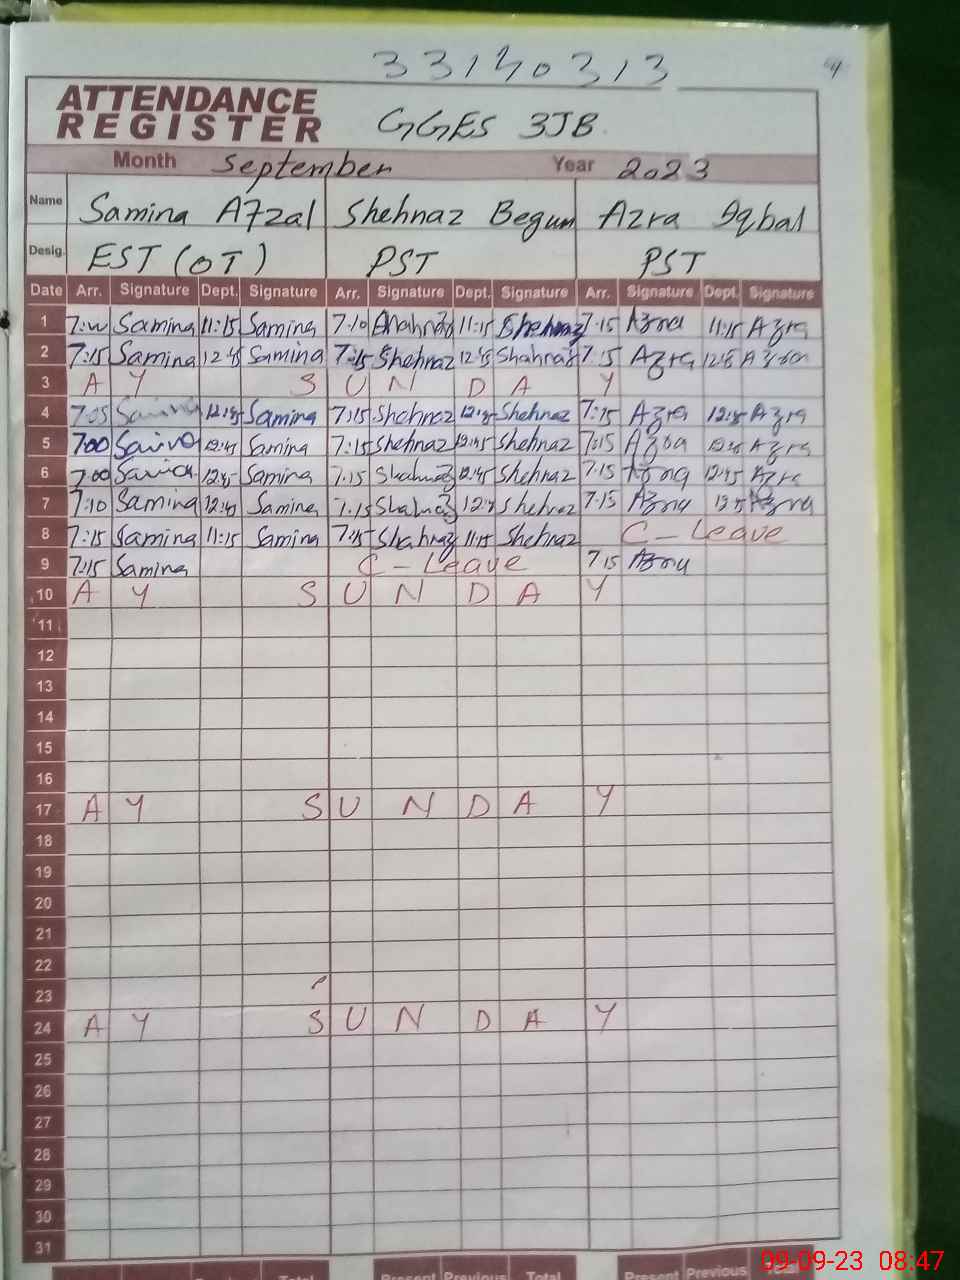 33130313
ATTENDANCE
REGISTER GGES 3JB
Month September Year 2023
Name Samina Afzal Shehnaz Begum Azra Iqbal
Desig. EST (OT) PST PST
Date Arr. Signature Dept. Signature Arr. Signature Dept. Signature Arr. Signature Dept. Signature
1 Samina 11:15 Samina 7:10 Shahnaz 11:15 Shehnaz 7:15 Azra 11:15 Azra
2 7:15 Samina Samina 7:15 Shehnaz Shahnaz 7:15 Azra Azra
3 A Y S U N D A Y
4 7:05 Samina 12:45 Samina 7:15 Shehnaz 12:45 Shehnaz 7:15 Azra 12:45 Azra
5 7:00 12:45 Samina 7:15 Shehnaz 12:45 Shehnaz 7:15 Azra 12:45 Azra
6 7:00 12:45 Samina 7:15 Shahnaz 12:45 Shehnaz 7:15 Azra 12:45 Azra
7 7:10 Samina Samina 7:15 Shahnaz Shehnaz 7:15 Azra Azra
8 7:15 Samina 11:15 Samina 7:15 Shahnaz 11:15 Shehnaz C - Leave
9 7:15 Samina C - Leave 7:15 Azra
10 A Y S U N D A Y
11
12
13
14
15
16
17 A Y S U N D A Y
18
19
20
21
22
23
24 A Y S U N D A Y
25
26
27
28
29
30
31
Total Present Previous Total Present Previous
09-09-23 08:47